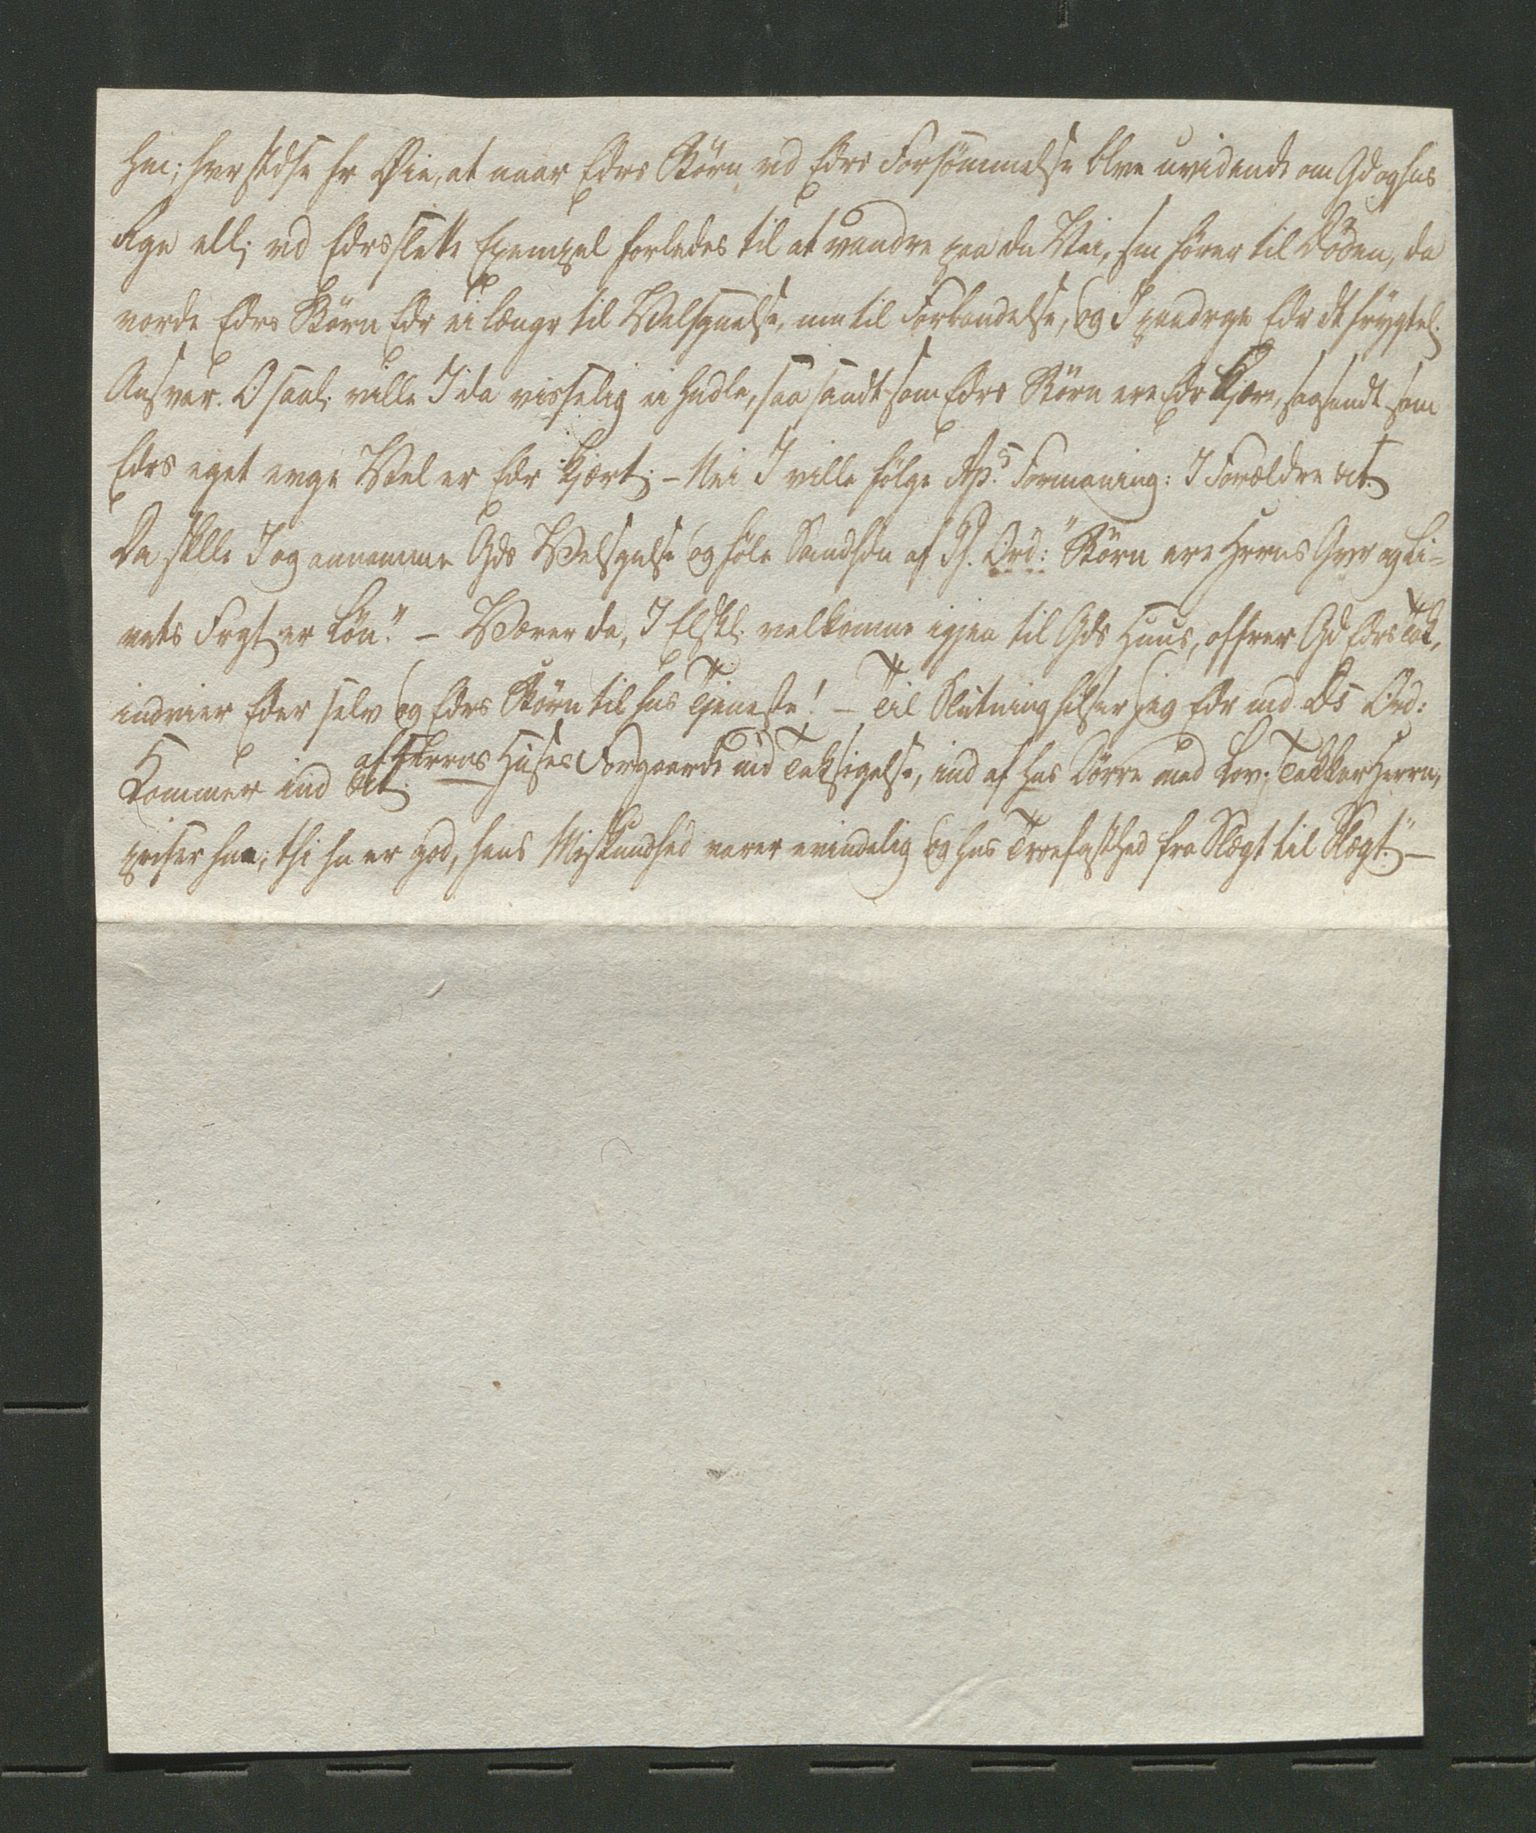 Hm; hver stdse fr Øie, at naar Edrs Børn vd Edrs Forsømmelse blve uvidende om Gd og hns
Rge ell; vd Edrs slette Exempel forledes til at vandre paa dn Vei, sm fører til Døden, da
vorde Edrs Børn Edr ei længr til Velsgnelse, mn til Forbandelse, og I paadrge Edr dt frygtel.
Ansvar. O saal. ville I da visselig ei hndle, saa sandt som Edrs Børn ere Edr kjære, saasandt som
Edrs eget evge Vel er Edr kjært; – Nei I ville følge Ap.s Formaning: I Forældre &ct.
Da sklle I og annamme Gds Velsgnelse og føle Sandhdn af Ps. Ord: "Børn ere Hrrns Gver og Li-
vets Frgt er Løn". – Værer da, I Elskl. velkomne igjen til Gds Huus, offrer Gd Edrs Tak,
indvier Eder selv og Edrs Børn til hns Tjeneste! – Til Slutning hilser jeg Edr md Ds Ord:
Kommer ind &ct. af Herrns Huses Forgaarde md Taksigelse, ind af hns Dørre med Lov; Takker Herrn,
priser hnn; thi hn er god, hans Miskundhed varer evindelig og hns Troefasthed fra Slægt til Slægt." –